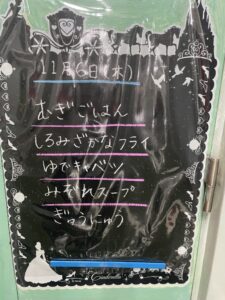 11月6日(木)
むぎごはん
しろみざかなフライ
ゆでキャベツ
みぞれスープ
ぎゅうにゅう
Cinderella